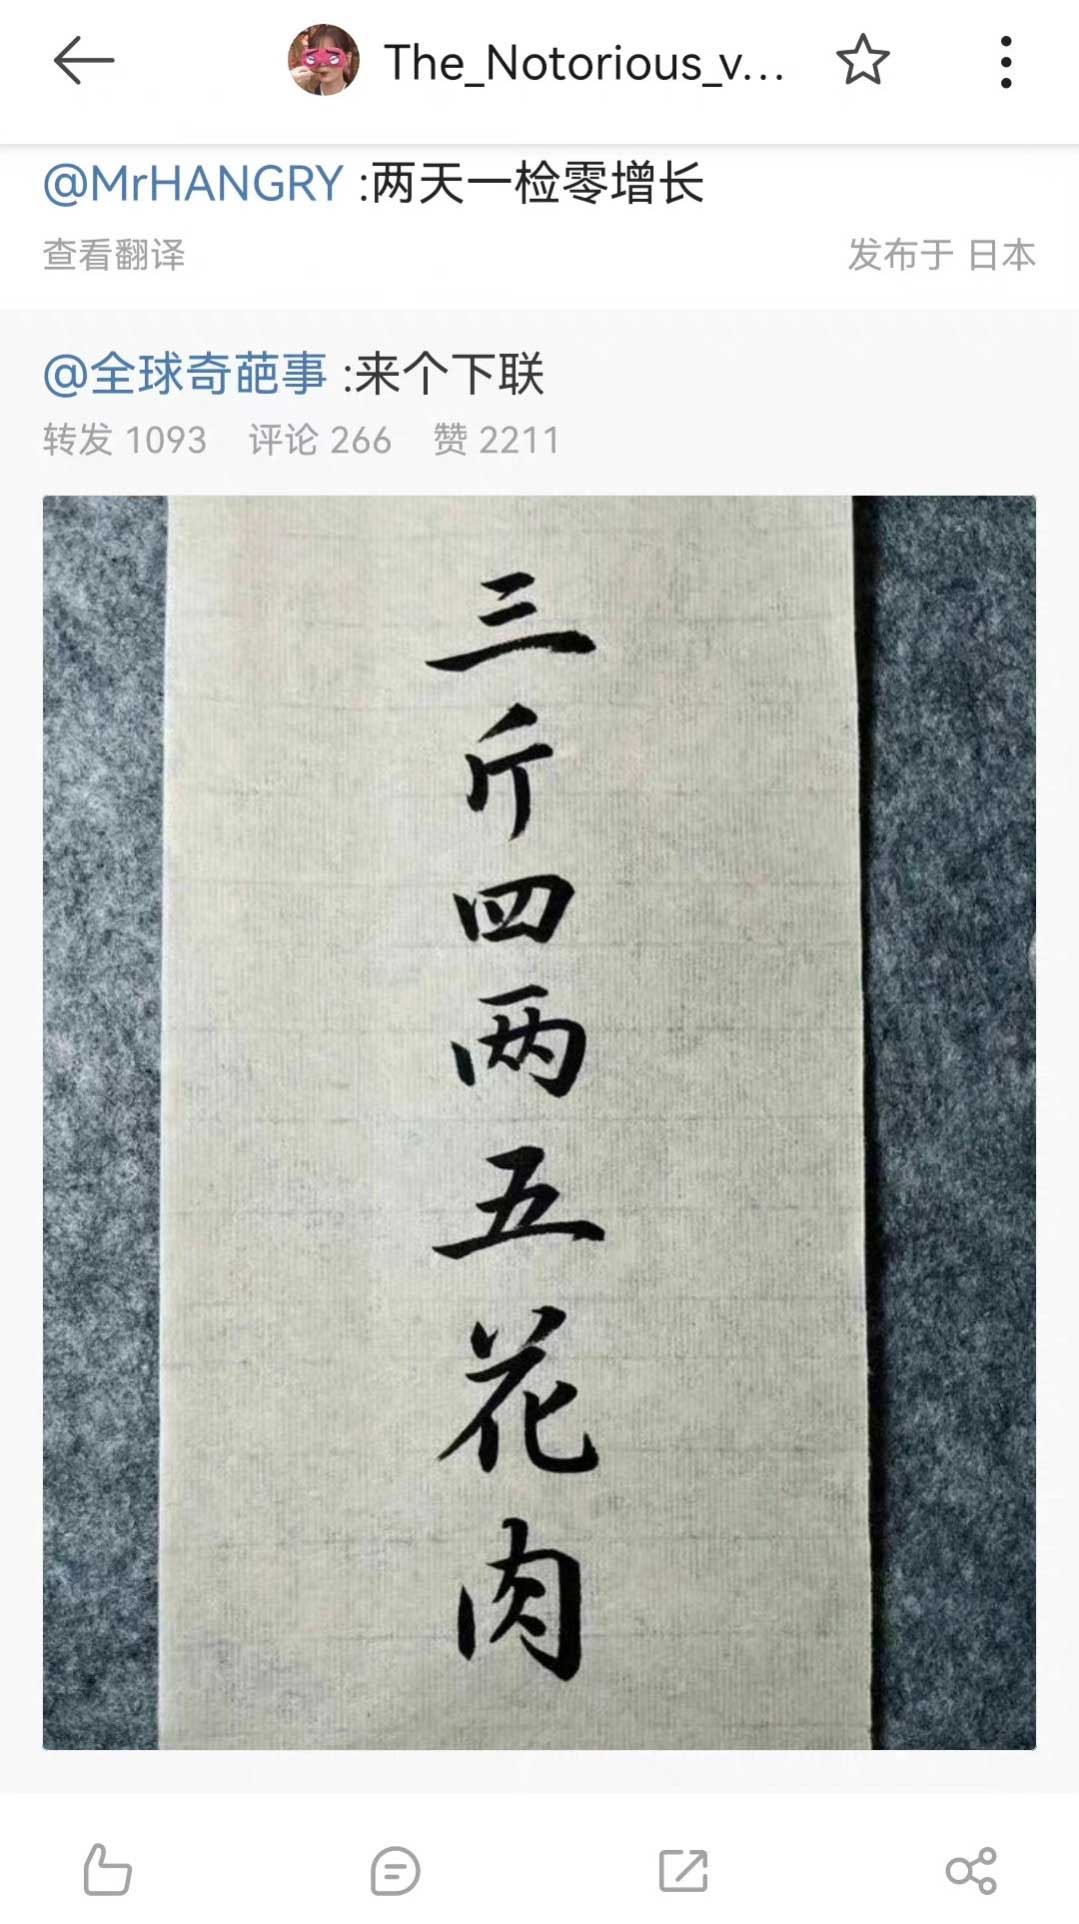 The_Notorious_v...
@MrHANGRY :两天一检零增长
查看翻译
发布于 日本
@全球奇葩事 :来个下联
转发 1093 评论 266 赞 2211
三斤四两五花肉